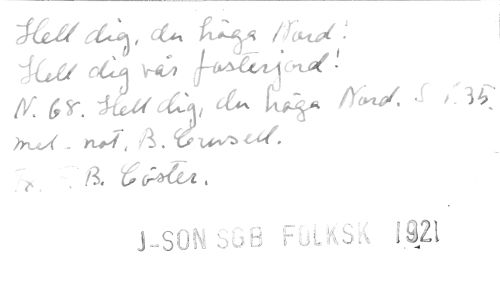 Hell dig, du höga Nord!
Hell dig vår fosterjord!
N. 68. Hell dig, du höga Nord. S. 35.
mel. not. B. Crusell.
B. Cöster.
J-SON SGB FOLKSK 1921